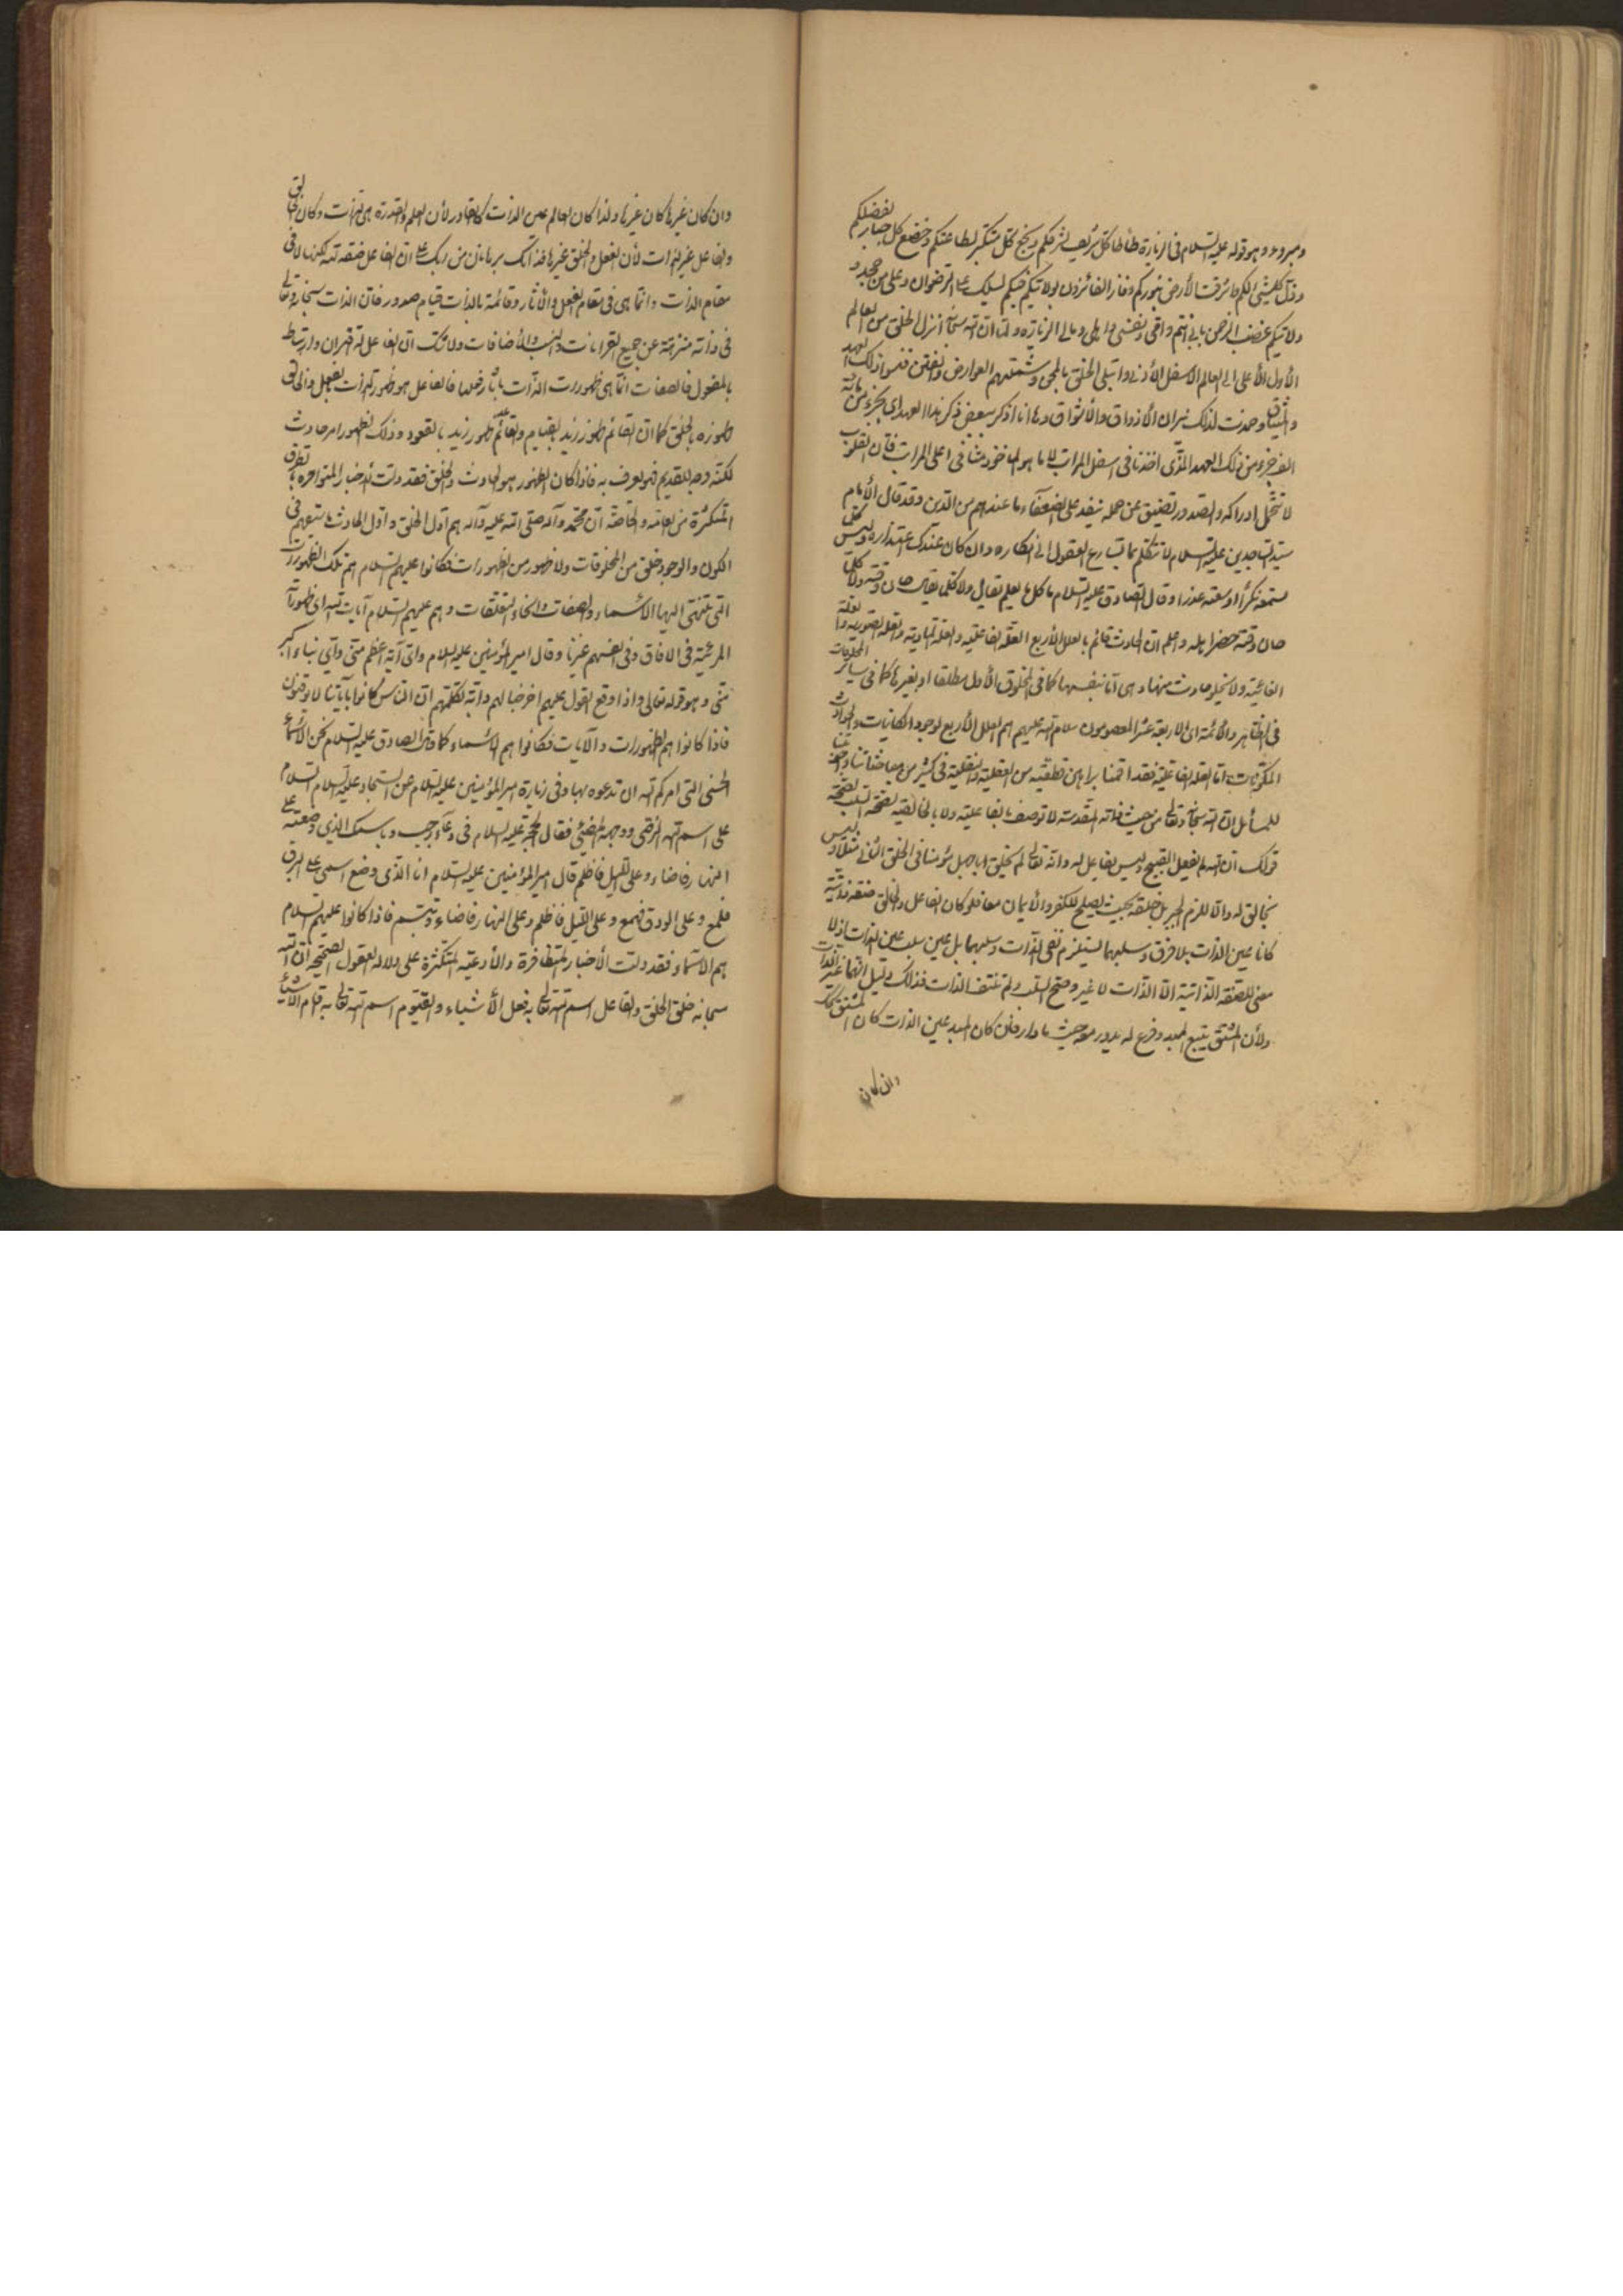 ومبروء وهو قوله عليه السلام في الزيارة طأطأ كل شريف لشرفكم وبخع كل متكبر لطاعتكم وخضع كل جبار لفضلكم
وذل كل شيء لكم واشرقت الأرض بنوركم وفاز الفائزون بولايتكم فبكم يسلك الى الرضوان وعلى من جحد
ولايتكم غضب الرحمن بابي انتم وامي ونفسي واهلي ومالي الزيارة ولما ان الله سبحانه انزل الخلق من العالم
الأول الأعلى الى العالم الاسفل الأدنى وابتلي الخلق وشملتهم العوارض فنسوا ذلك العهد
والميثاق وخمدت لذلك نيران الأذواق والأشواق وها انا اذكر بعض ذكر هذا العهد اي بجزء من مائة
الف جزء من ذلك العهد الذي اخذنا في اسفل المراتب لا ما هو المأخوذ منا في اعلى المراتب فان القلوب
لا تتحمل ادراكه والصدور تضيق عن حمله على الضعفاء ما عندهم من الدين وقد قال الأمام
سيد الساجدين عليه السلام لا تتكلم بما تسارع العقول الى انكاره وان كان عندك اعتذاره وليس كلما
تسمعه نكراً اوسعته عذرا وقال الصادق عليه السلام ما كل ما يعلم يقال ولا كلما يقال حان وقته ولا كلما
حان وقته حضر اهله واعلم ان الحادث قائم بالعلل الأربع العلة الفاعلية والعلة المادية والعلة الصورية والعلة
الغائية ولا يخلو حادث منها وهي اما بنفسها كما في المخلوق الأول مطلقا او بغيرها كما في سائر المخلوقات
في الظاهر والأئمة الاربعة عشر المعصومون سلام الله عليهم هم العلل الأربع لوجود الكائنات والحوادث
المكونات اما العلة الفاعلية فقد اقمنا براهين قطعية من العقلية والنقلية في كثير من مباحثاتنا واجوبتنا
للمسائل ان الله سبحانه وتعالى من حيث ذاته المقدسة لا توصف بالفاعلية ولا بالخالقية لصحة السلب لصحة
قولك ان الله لم يفعل القبيح وليس بفاعل له وانه تعالى لم يخلق ابا جهل مؤمنا في الخلق الثاني مثلا وليس
بخالق له والا للزم الجبر بل خلقه بحيث يصلح للكفر والأيمان معا فلو كان الفاعل والخالق صفة ذاتية
كانا عين الذات بلا فرق وسلبهما يستلزم نفي الذات وسلبهما بل عين سلب عين الذات اذ لا
معنى للصفة الذاتية الا الذات لا غير وصح السلب ولم تنتف الذات فذلك دليل انهما غير الذات
ولأن المشتق يتبع المبدء وفرع له يدور معه حيث ما دار فان كان المبدء عين الذات كان المشتق كذلك
وان كان
وان كان غيرها كان غيرها ولذا كان العالم عين الذات كالقادر لأن العلم والقدرة هي الذات وكان الخالق
والفاعل غير الذات لأن الفعل والخلق غيرها فذانك برهانان من ربك على ان الفاعل صفة لله لكنها لا في
مقام الذات وانما هي في مقام الفعل والأثار وقائمة بالذات قيام صدور فان الذات سبحانه وتعالى
في ذاته منزهة عن جميع القرانات والنسب والأضافات ولا شك ان الفاعل له قران وارتباط
بالمفعول فالصفات انما هي ظهورات الذات بآثار فعلها فالفاعل هو ظهور الذات بالفعل والخالق
ظهوره بالخلق كما ان القائم ظهور زيد بالقيام والقاعد ظهور زيد بالقعود وذلك الظهور امر حادث
لكنه وجه للقديم فيعرف به فاذا كان الظهور هو الحادث والخلق فقد دلت الأخبار المتواترة بطرق
المتكثرة من العامة والخاصة ان محمد وآله صلى الله عليه وآله هم اول الخلق واول الحادث لم يسبقهم في
الكون والوجود خلق من المخلوقات ولا ظهور من الظهورات فكانوا عليهم السلام هم تلك الظهورات
التي تنتهي اليها الأسماء والصفات وانحاء التعلقات وهم عليهم السلام آيات الله اي ظهوراته
المرئية في الافاق وفي انفسهم غيرنا وقال امير المؤمنين عليه السلام واي آية اعظم مني واي نباء اكبر
مني وهو قوله تعالى واذا وقع القول عليهم اخرجنا لهم دابة تكلمهم ان الناس كانوا بآياتنا لا يوقنون
فاذا كانوا هم الظهورات والآيات فكانوا هم الأسماء كما قال الصادق عليه السلام نحن الأسماء
الحسنى التي امركم الله ان تدعوه بها وفي زيارة امير المؤمنين عليه السلام عن السجاد عليه السلام السلام
على اسم الله الرضي ووجهه المضيئ فقال الحجة عليه السلام في دعاء رجب وباسمك الذي وضعته على
النهار فاضاء وعلى الليل فاظلم قال امير المؤمنين عليه السلام انا الذي وضع اسمي على البرق
فلمع وعلى الودق فهمع وعلى الليل فاظلم وعلى النهار فاضاء وتبسم فاذا كانوا عليهم السلام
هم الاسماء فقد دلت الأخبار المتظافرة والأدعية المتكثرة على دلالة العقول الصحيحة ان الله
سبحانه خلق الخلق والفاعل اسم لله تعالى به فعل الأشياء والقيوم اسم لله تعالى به قوام الأشياء